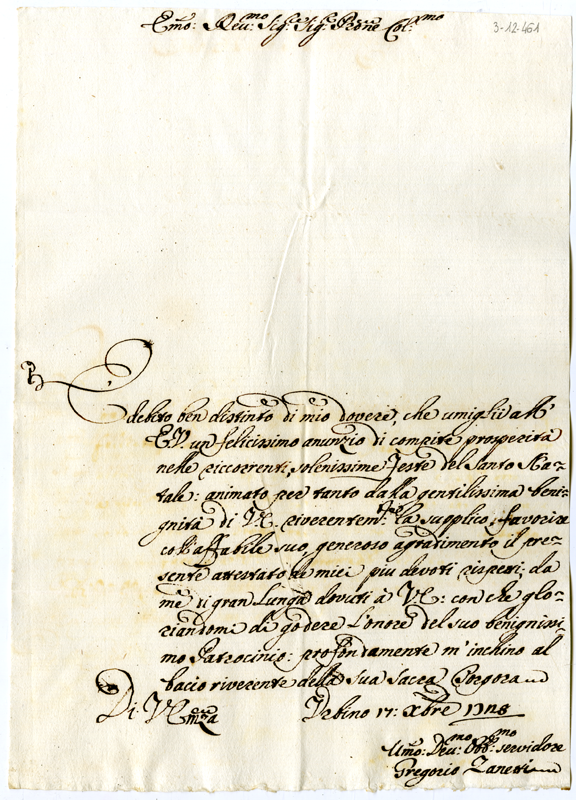 Emo: Reu:mo Sig:r Sig:r Prone Col:mo
3-12-461
E debito ben distinto di mio dovere, che umigli all'
E.V. un felicissimo anunzio di compite prosperità
nelle riccorrenti, solenissime Feste del Santo Na-
tale: animato per tanto dalla gentilissima beni-
gnità di V.E. riverentem:te la supplico, favorire
coll'affabile suo, generoso agradimento il pre-
sente attestato de miei piu devoti rispeti; da
me di gran Lunga dovuti à V.E: con che glo-
riandomi di godere l'onore del suo benignissi-
mo Patrocinio: profondamente m'inchino al
bacio riverente della Sua Sacra Porpora
Di V.Emza Urbino 17: Xbre
Umo: Deu:mo Obb:mo servidore
Gregorio Zanetti